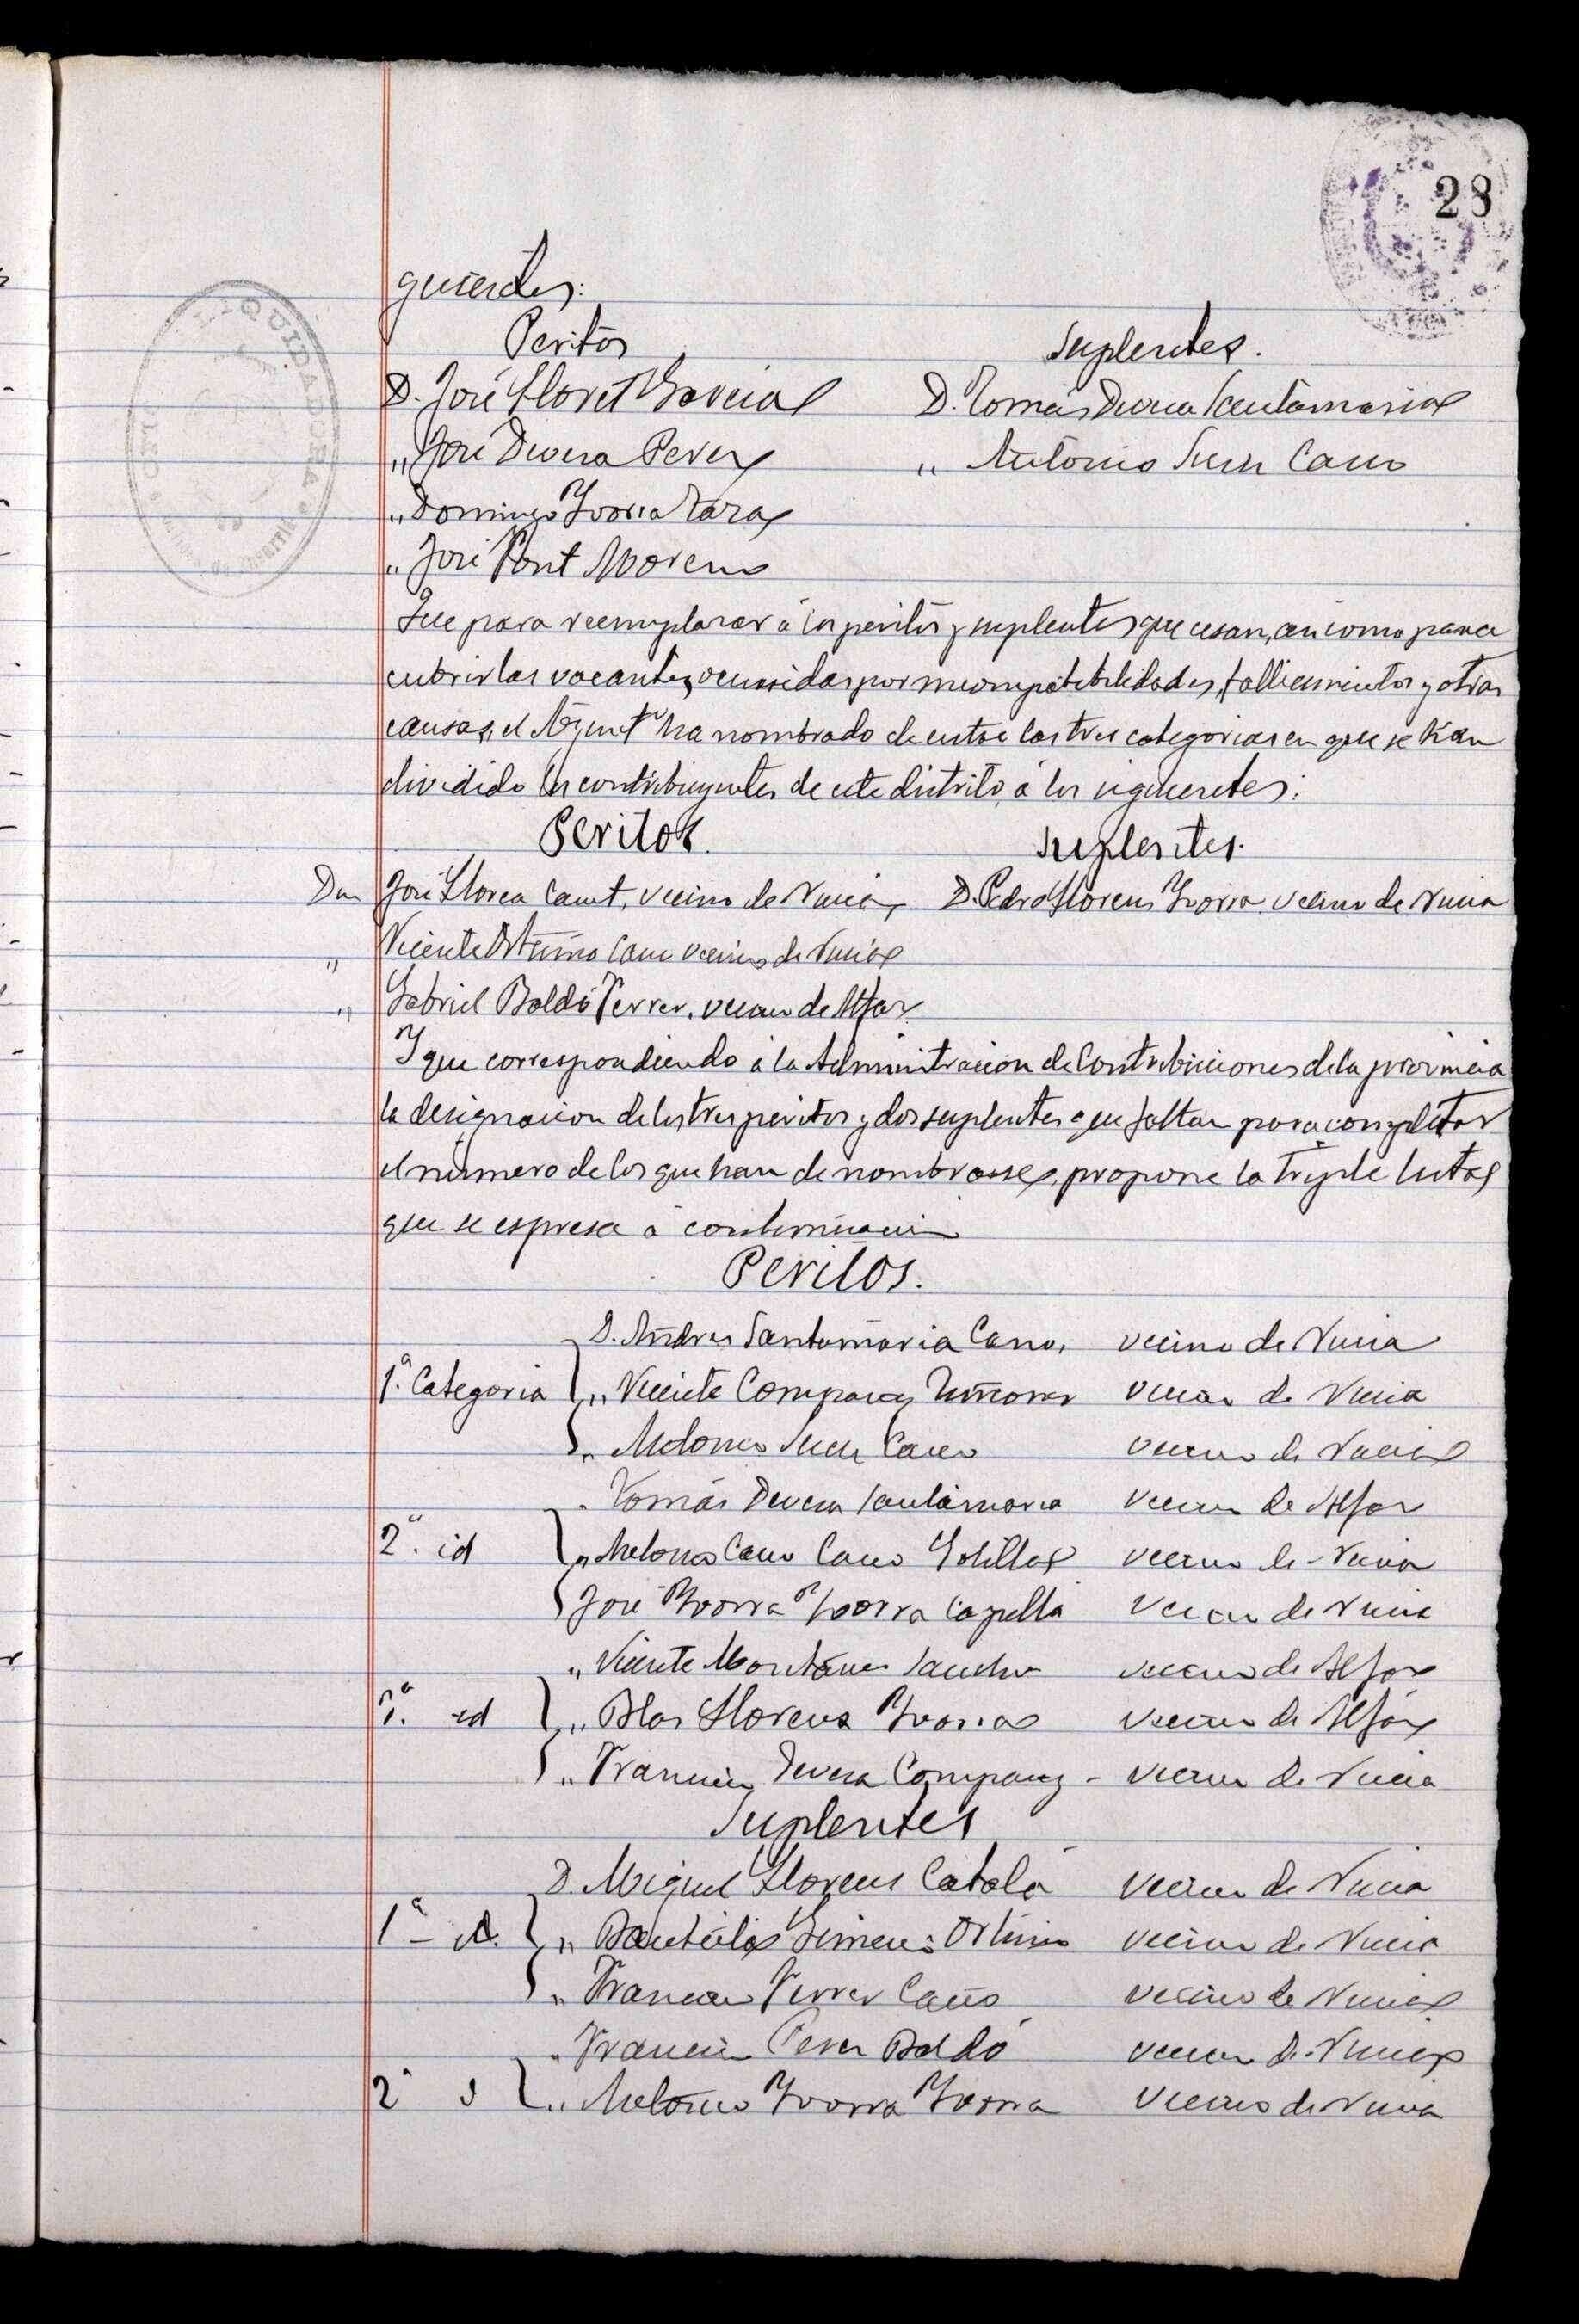 28
guientes:
Peritos Suplentes.
D. José Lloret García D. Tomás Devesa Santamaria
" José Devesa Perez " Antonio Such Cano
" Domingo Yvorra
" José Pont Moreno
Que para reemplazar á los peritos y suplentes que cesan, así como para
cubrir las vacantes ocurridas por incompatibilidades, fallecimientos y otras
causas, el Ayuntº ha nombrado de entre las tres categorias en que se han
dividido los contribuyentes de este distrito á los siguientes:
Peritos. Suplentes.
Don José Llorca Canet, vecino de Nucia D. Pedro Llorens Yvorra vecino de Nucia
" Vicente Ortuño Cano vecino de Nucia
" Gabriel Baldó Ferrer, vecino de Alfaz
Y que correspondiendo á la Administracion de Contribuciones de la provincia
la designacion de los tres peritos y dos suplentes que faltan para completar
el número de los que han de nombrarse, propone la triple lista
que se espresa á continuacion
Peritos.
D. Andres Santamaria Cano, vecino de Nucia
1ª Categoria " Vicente Company vecino de Nucia
" Antonio Such Cano vecino de Nucia
" Tomás Devesa Santamaria vecino de Alfaz
2ª id " Antonio Cano Cano vecino de Nucia
José Yvorra Yvorra Capella vecino de Nucia
" Vicente Montaner Sancho vecino de Alfaz
3ª id " Blas Llorens Yvorra vecino de Alfaz
" Francisco Devesa Company - vecino de Nucia
Suplentes
D. Miguel Llorens Catalá vecino de Nucia
1ª id. " Bautista Gimeno Ortuño vecino de Nucia
" Francisco Ferrer Cano vecino de Nucia
" Francisco Perez Baldó vecino de Nucia
2ª " Antonio Yvorra Yvorra vecino de Nucia